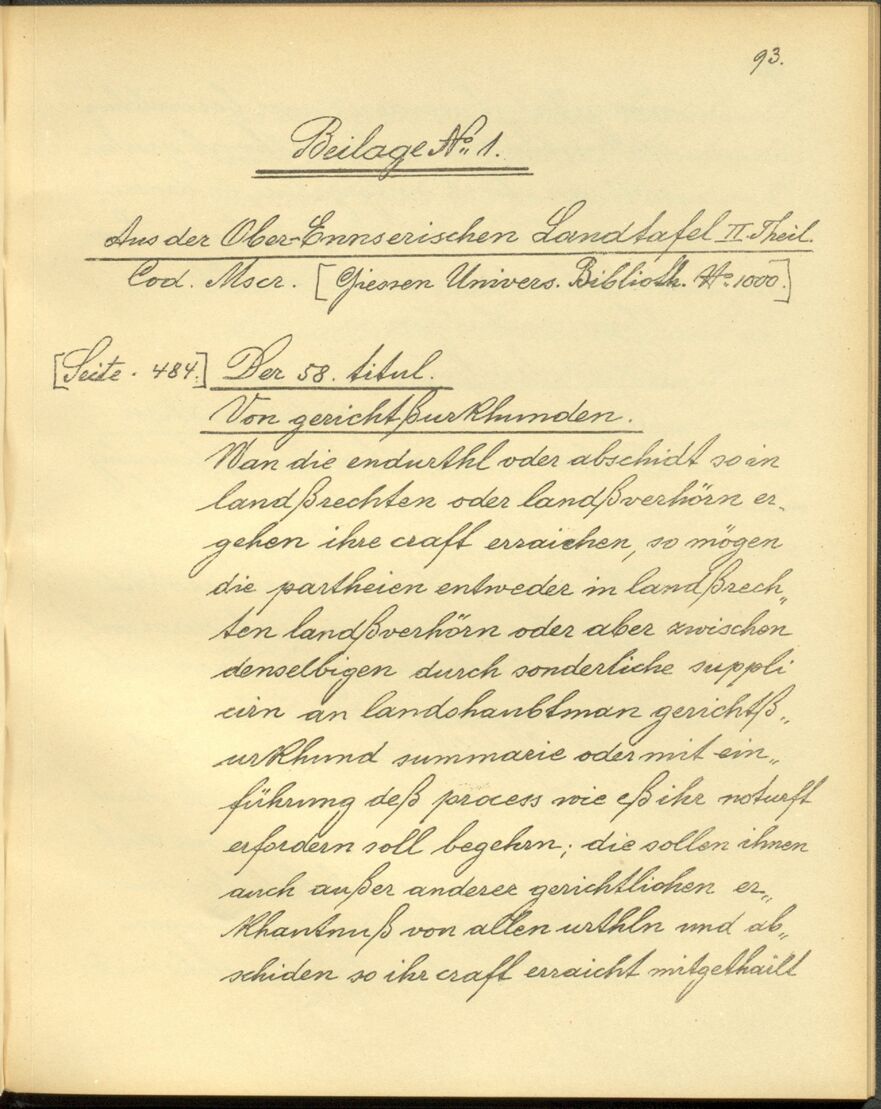 93.
Beilage No. 1.
Aus der Ober-Ennserischen Landtafel II. Theil.
Cod. Mscr. [Giessen Univers. Biblioth. No. 1000.]
[Seite. 484.] Der 58. titul.
Von gerichtßurkhunden.
Wan die endurthl oder abschidt so in
landßrechten oder landßverhörn er-
gehen ihre craft erraichen, so mögen
die partheien entweder in landßrech„
ten landßverhörn oder aber zwischen
denselbigen durch sonderliche suppli
cirn an landshaubtman gerichtß„
urkhund summarie oder mit ein„
führung deß process wie eß ihr noturft
erfordern soll begehrn; die sollen ihnen
auch außer anderer gerichtlichen er„
khantnuß von allen urthln und ab„
schiden so ihr craft erraicht mitgethailt